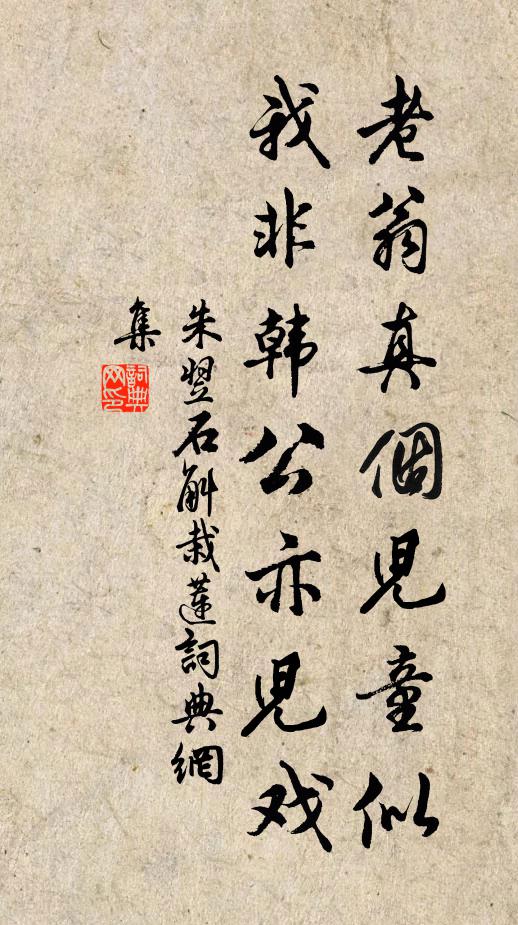 老翁真個児童似
我非韩公亦児戏
朱翌石斛栽蓮詞典網
集
詞典
网印